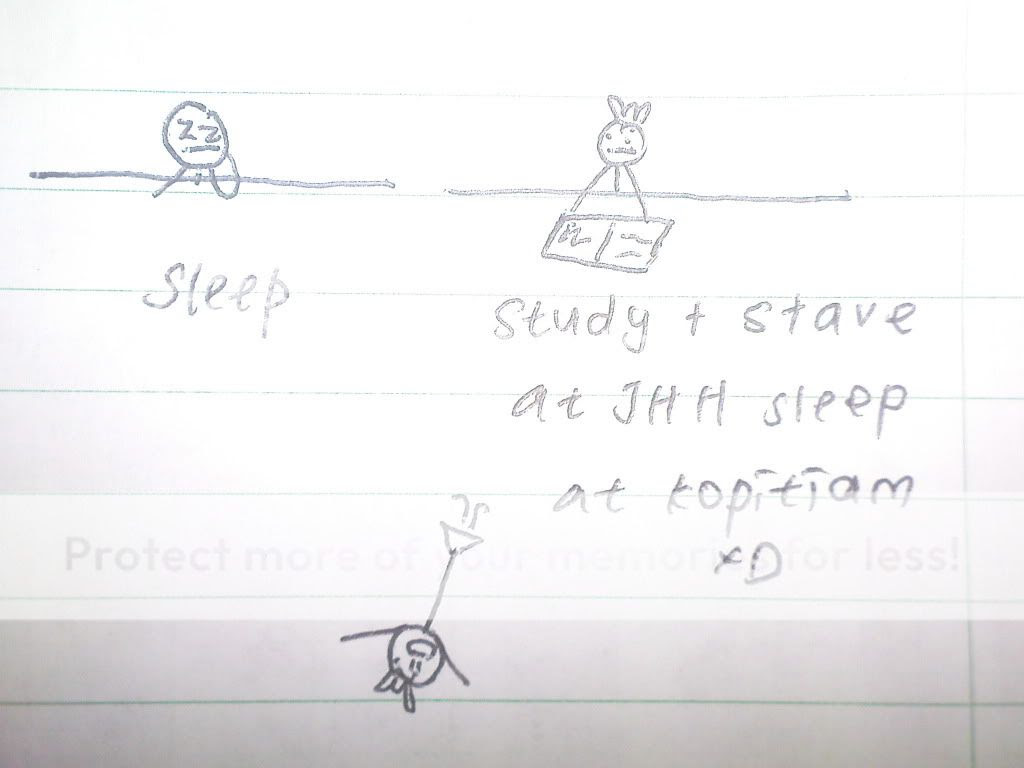 zz
sleep
study + stave
at JHH sleep
at kopitiam
xD
Protect more of your memories for less!